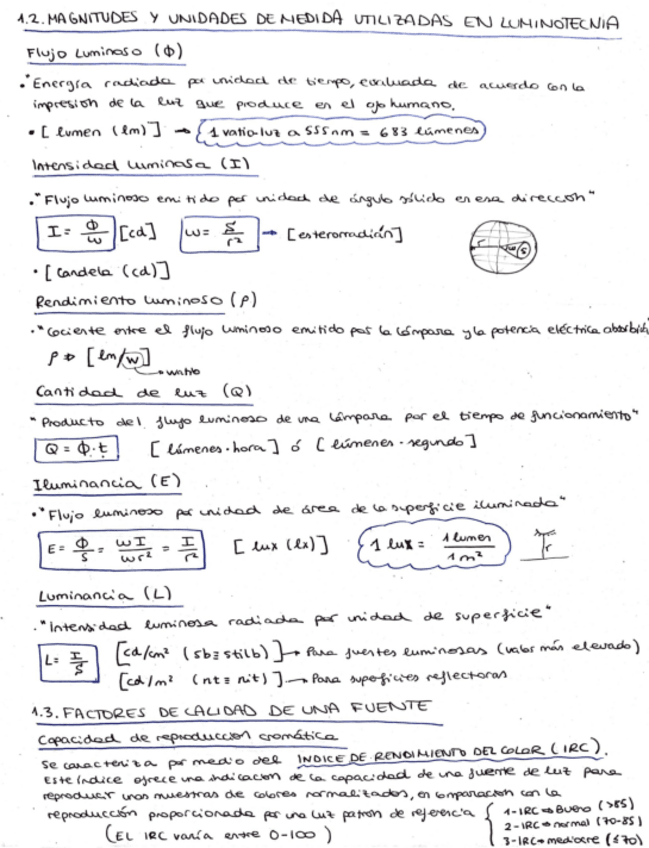 1.2. MAGNITUDES Y UNIDADES DE MEDIDA UTILIZADAS EN LUMINOTECNIA
Flujo Luminoso (Φ)
• "Energía radiada por unidad de tiempo, evaluada de acuerdo con la
impresión de la luz que produce en el ojo humano.
• [lumen (lm)] → 1 vatio-luz a 555nm = 683 lúmenes
Intensidad Luminosa (I)
• "Flujo luminoso emitido por unidad de ángulo sólido en esa dirección"
I = Φ/ω [cd] ω = S/r² → [esterorradián]
r ω S
• [Candela (cd)]
Rendimiento Luminoso (ρ)
• "Cociente entre el flujo luminoso emitido por la lámpara y la potencia eléctrica absorbida
ρ → [lm/w]
→ watio
Cantidad de luz (Q)
"Producto del flujo luminoso de una lámpara por el tiempo de funcionamiento"
Q = Φ·t [lúmenes·hora] ó [lúmenes·segundo]
Iluminancia (E)
• "Flujo luminoso por unidad de área de la superficie iluminada"
E = Φ/S = ωI/ωr² = I/r² [lux (lx)] 1 lux = 1 lumen/1 m² r
Luminancia (L)
• "Intensidad luminosa radiada por unidad de superficie"
L = I/S [cd/cm² (sb ≡ stilb)] → Para fuentes luminosas (valor más elevado)
[cd/m² (nt ≡ nit)] → Para superficies reflectoras
1.3. FACTORES DE CALIDAD DE UNA FUENTE
Capacidad de reproducción cromática
Se caracteriza por medio del INDICE DE RENDIMIENTO DEL COLOR (IRC).
Este índice ofrece una indicación de la capacidad de una fuente de luz para
reproducir unas muestras de colores normalizados, en comparación con la
reproducción proporcionada por una luz patrón de referencia
(EL IRC varía entre 0-100)
1-IRC → Bueno (>85)
2-IRC → normal (70-85)
3-IRC → mediocre (≤70)